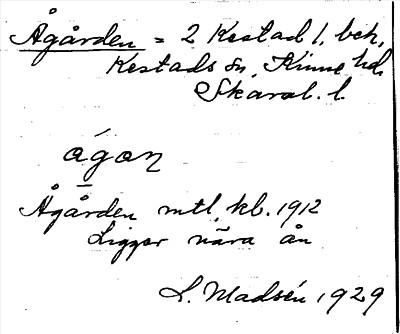 Ågården = 2 Kestad l. beb.
Kestads sn, Kinne hd.
Skarab. l.
ågaɳ
Ågården mtl. kb. 1912
Ligger nära ån
L. Madsén 1929